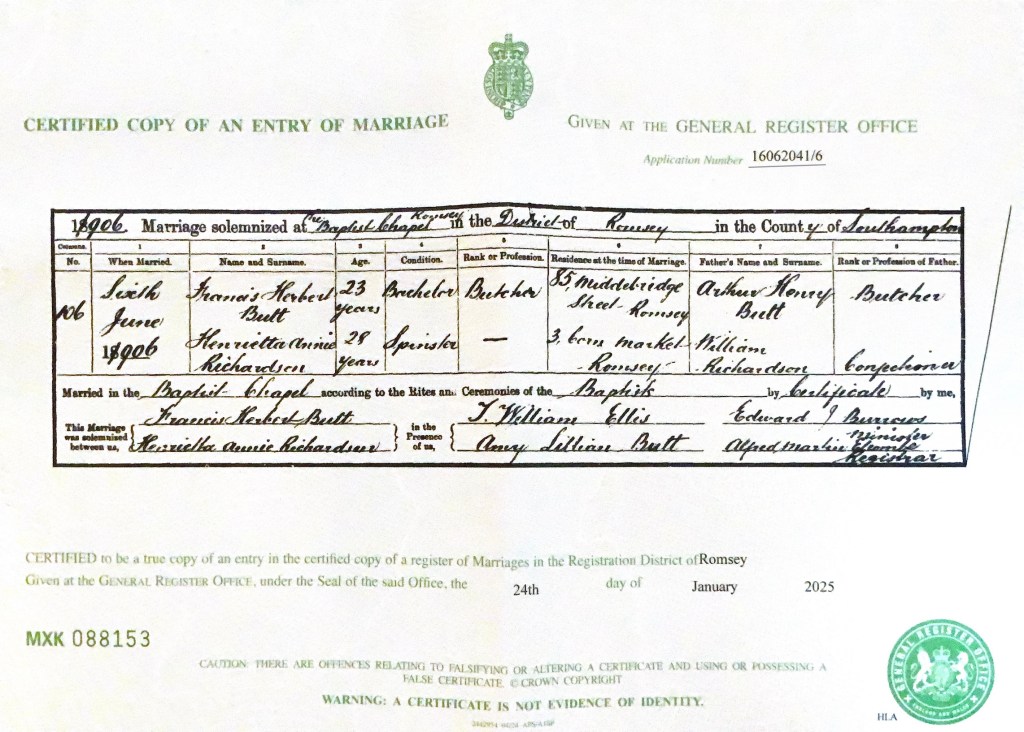 CERTIFIED COPY OF AN ENTRY OF MARRIAGE
GIVEN AT THE GENERAL REGISTER OFFICE
Application Number 16062041/6
1906. Marriage solemnized at the Baptist Chapel Romsey in the District of Romsey in the County of Southampton
Columns. 1 2 3 4 5 6 7 8
No. When Married. Name and Surname. Age. Condition. Rank or Profession. Residence at the time of Marriage. Father's Name and Surname. Rank or Profession of Father.
106 Sixth June 1906
Francis Herbert Butt 23 years Bachelor Butcher 85, Middlebridge Street Romsey Arthur Henry Butt Butcher
Henrietta Annie Richardson 28 years Spinster — 3, Corn Market Romsey William Richardson Confectioner
Married in the Baptist Chapel according to the Rites and Ceremonies of the Baptists by Certificate by me,
This Marriage was solemnized between us, Francis Herbert Butt Henrietta Annie Richardson
in the Presence of us, T. William Ellis Amy Lillian Butt
Edward J Burrows Minister
Alfred Martin Registrar
CERTIFIED to be a true copy of an entry in the certified copy of a register of Marriages in the Registration District of Romsey
Given at the GENERAL REGISTER OFFICE, under the Seal of the said Office, the 24th day of January 2025
MXK 088153
CAUTION: THERE ARE OFFENCES RELATING TO FALSIFYING OR ALTERING A CERTIFICATE AND USING OR POSSESSING A
FALSE CERTIFICATE. © CROWN COPYRIGHT
WARNING: A CERTIFICATE IS NOT EVIDENCE OF IDENTITY.
GENERAL REGISTER OFFICE
ENGLAND AND WALES
HLA